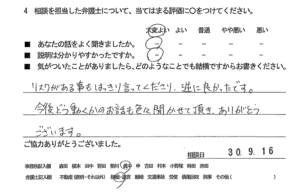 4 相談を担当した弁護士について、当てはまる評価に〇をつけてください。
大変よい よい 普通 やや悪い 悪い
■ あなたの話をよく聞きましたか。
■ 説明は分かりやすかったですか。
■ 気がついたことがありましたら、どのようなことでも結構ですからお書きください。
リスクがある事もはっきり言ってくださり、逆に良かったです。
今後どう動くかのお話も色々聞かせて頂き、ありがとう
ございます。
ご協力ありがとうございました。
相談日 30.9.16
事務局記入欄
弁護士記入欄